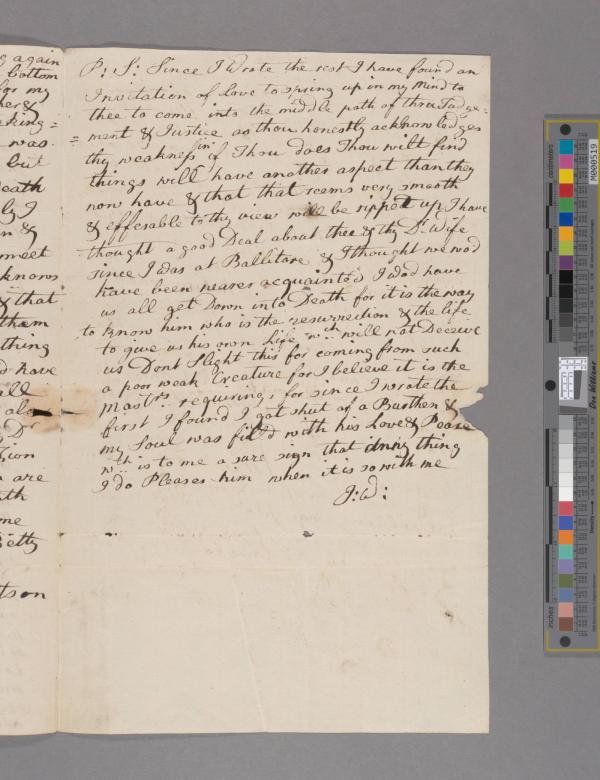 again
bottom
for my
her &
eking =
was
but
Death
ly I
n &
meet
knows
& that
tham
thing
d have
all
alo
Dr
tion
are
th
me
Betty
tson
P: S: Since I Wrote the rest I have found an
Invitation of Love to spring up in my Mind to
thee to come into the middle path of thru Judge=
=ment & Justice as thou honestly acknowledges
thy weakness in if Thou does Thou wilt find
things will have another aspect than they
now have & that that seems very smooth
& efferable to thy view will be ripped up I have
thought a good Deal about thee & thy Dr Wife
since I was at Ballitore & I thought we wod
have been nearer acquainted I wod have
us all get Down into Death for it is the way
to know him who is the resurrection & the life
to give us his own Life wch will not Deceive
us Dont Slight this for coming from such
a poor weak Creature for I believe it is the
Mastrs requirings for since I wrote the
first I found I got shut of a Burthen &
my Soul was fill'd with his Love & Peace
wch is to me a sure sign that in my thing
I do Pleases him when it is so with me
J: W:
centimeters
M000519
Don Williams
inches